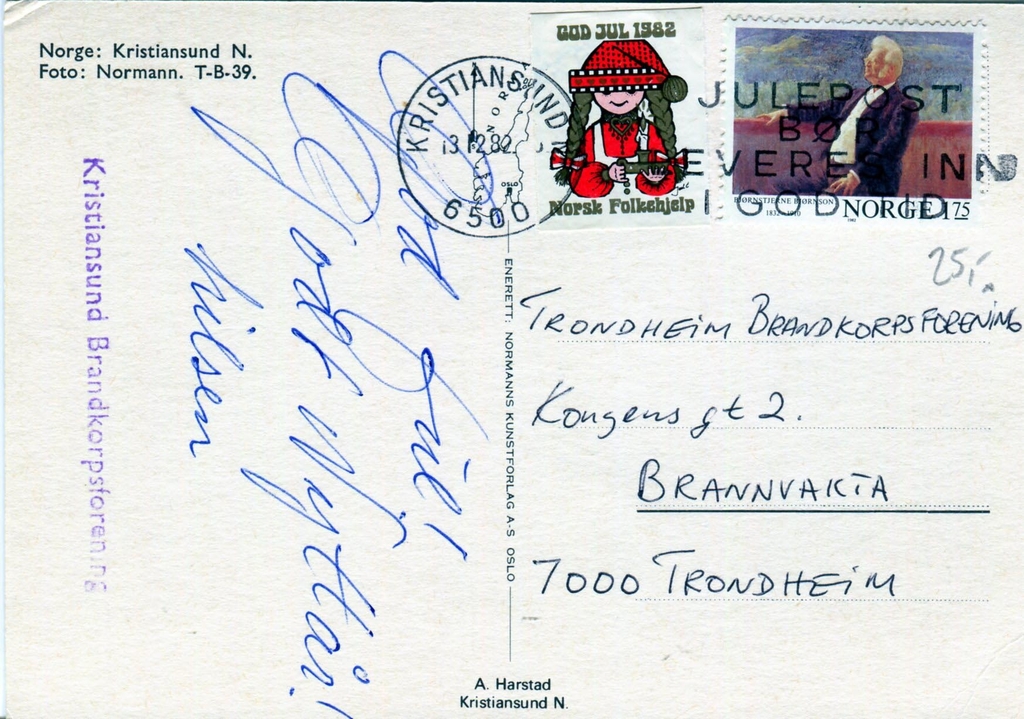 Norge: Kristiansund N.
Foto: Normann. T-B-39.
Kristiansund Brandkorpsforening
God Jul!
Godt Nyttår!
hilsen
KRISTIANSUND N
NORGE
OSLO
13.12.82
6500
GOD JUL 1982
Norsk Folkehjelp
JULEPOST
BØR
EVERES INN
I GOD TID
BJØRNSTJERNE BJØRNSON
1832-1910
NORGE 175
ENERETT: NORMANNS KUNSTFORLAG A-S OSLO
25,-
TRONDHEIM BRANDKORPSFORENING
Kongens gt 2.
BRANNVAKTA
7000 TRONDHEIM
A. Harstad
Kristiansund N.